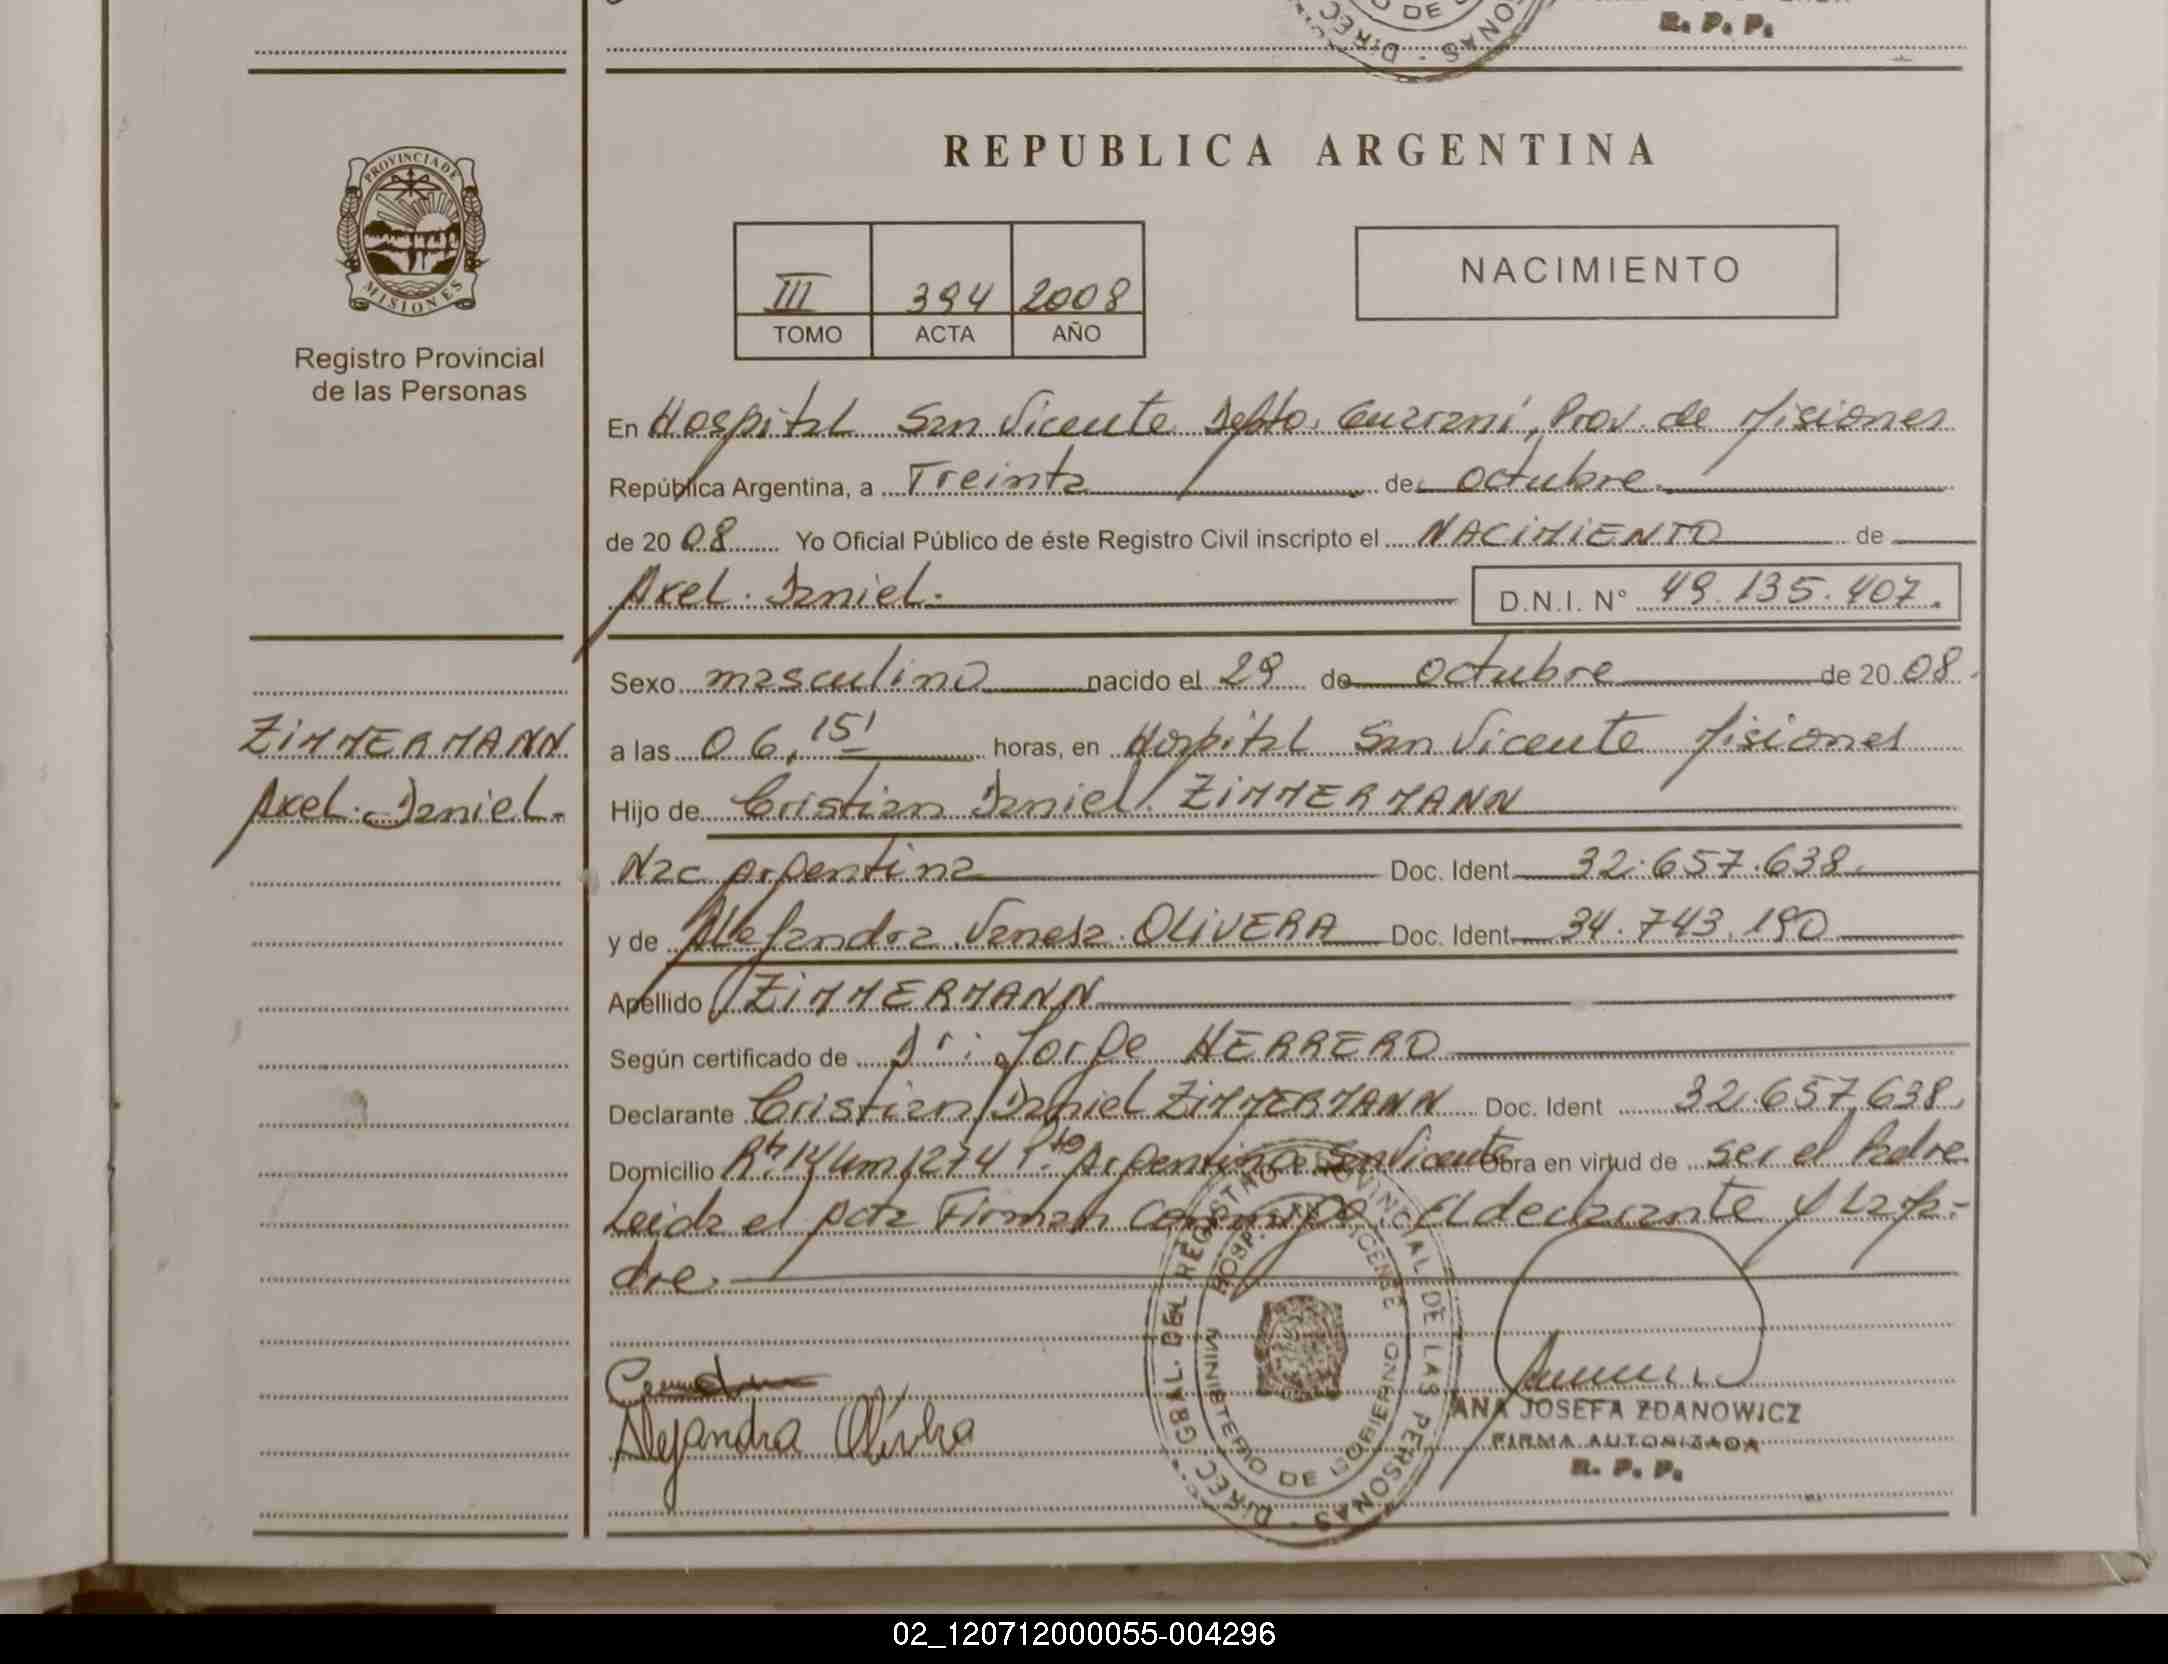 R. P. P.
REPUBLICA ARGENTINA
PROVINCIA DE
MISIONES
Registro Provincial
de las Personas
NACIMIENTO
III 394 2008
TOMO ACTA AÑO
En Hospital San Vicente Depto. Guarani, Prov. de Misiones
República Argentina, a Treinta de octubre
de 20 08 Yo Oficial Público de éste Registro Civil inscripto el NACIMIENTO de
Axel Daniel. D.N.I. N° 49.135.407.
Sexo masculino nacido el 29 de octubre de 20 08.
ZIMMERMANN
a las 06,15' horas, en Hospital San Vicente Misiones
Axel Daniel.
Hijo de Cristian Daniel ZIMMERMANN
Nac Argentina Doc. Ident 32.657.638.
y de Alejandra Vanesa OLIVERA Doc. Ident 34.743.190
Apellido ZIMMERMANN
Según certificado de Dr: Jorge HERRERO
Declarante Cristian Daniel ZIMMERMANN Doc. Ident 32.657.638.
Domicilio 1274 Pto Argentino San Vicente Obra en virtud de ser el Padre
Leida el Acta Firman conmigo. El declarante y la Ma-
dre.
Alejandra Olivera
DIREC. GRAL. DEL REGISTRO PROVINCIAL DE LAS PERSONAS
MINISTERIO DE GOBIERNO
ANA JOSEFA ZDANOWICZ
FIRMA AUTORIZADA
R. P. P.
02_120712000055-004296